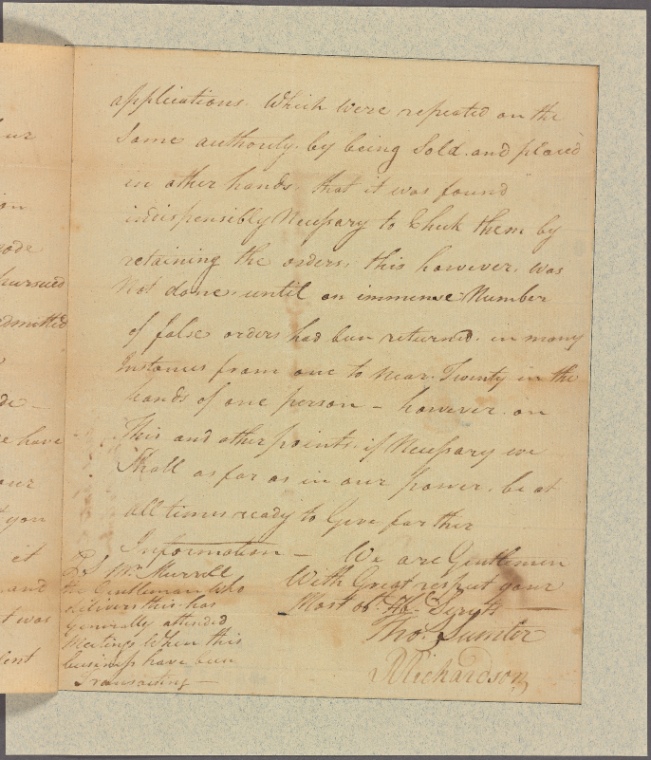 our
ion
mode
pursued
admitted
de –
we have
our
you
it
and
t was
lent
applications. Which were repeated on the
Same authority. by being Sold. and placed
in other hands. that it was found
indispensibly Necessary to Check them by
retaining the orders. this however. was
Not done. until an immense Number
of false orders had been returned. in many
Instances from one to near. Twenty in the
hands of one person – however. on
This and other points. if Necessary we
Shall as far as in our power. be at
all times ready to Give farther
Information – We are Gentlemen
With Great respect your
Most ob. Hbl. Servts
Tho.s Sumter
R Richardson
P S Mr. Murrell
the Gentleman who
delivers this has
generally attended
Meetings When this
business have been
Transacting –